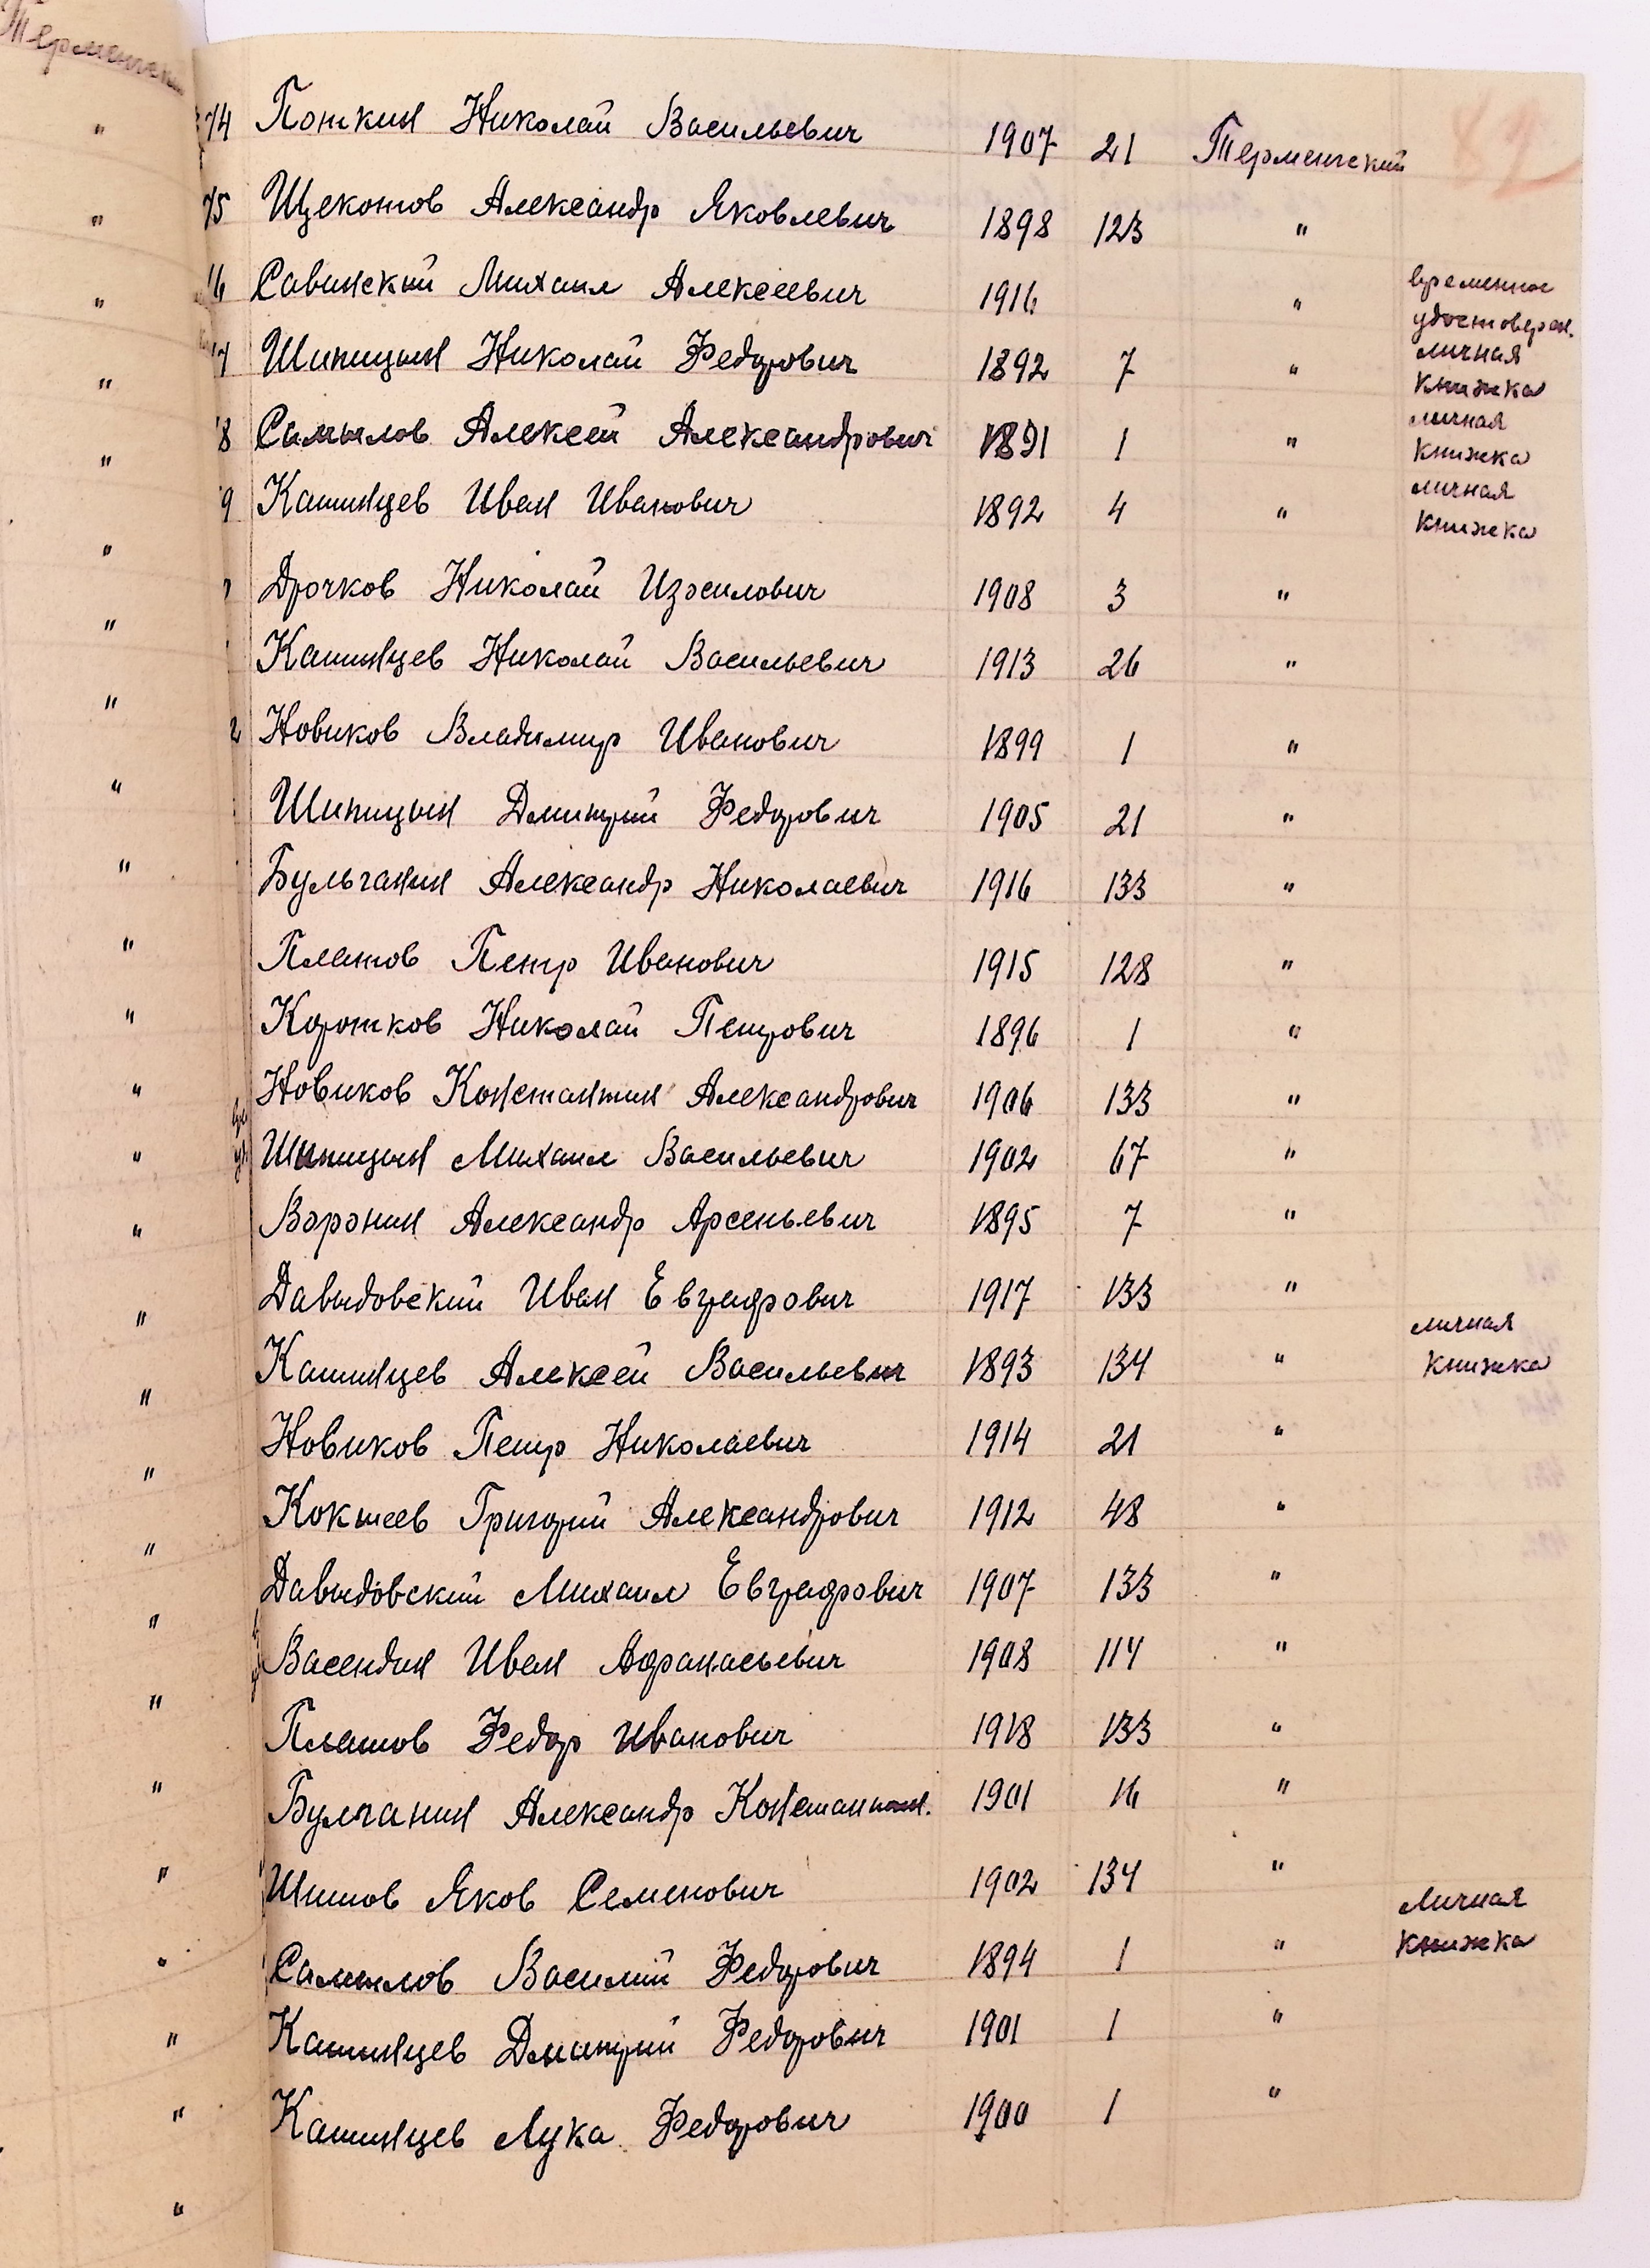 Терменский
74 Поткин Николай Васильевич 1907 21 Терменский 82
75 Щекотов Александр Яковлевич 1898 123 "
76 Савинский Михаил Алексеевич 1916 " временное удостоверен.
77 Шипицын Николай Федорович 1892 7 " личная книжка
8 Самылов Алексей Александрович 1891 1 " личная книжка
9 Кашинцев Иван Иванович 1892 4 " личная книжка
Дрочков Николай Изосимович 1908 3 "
Кашинцев Николай Васильевич 1913 26 "
2 Новиков Владимир Иванович 1899 1 "
Шипицын Дмитрий Федорович 1905 21 "
Бульганин Александр Николаевич 1916 133 "
Платов Петр Иванович 1915 128 "
Коротков Николай Петрович 1896 1 "
Новиков Константин Александрович 1906 133 "
Шипицын Михаил Васильевич 1902 67 "
Воронин Александр Арсеньевич 1895 7 "
Давыдовский Иван Евграфович 1917 133 "
Кашинцев Алексей Васильевич 1893 134 " личная книжка
Новиков Петр Николаевич 1914 21 "
Кокшеев Григорий Александрович 1912 48 "
Давыдовский Михаил Евграфович 1907 133 "
Васендин Иван Афанасьевич 1908 114 "
Платов Федор Иванович 1918 133 "
Булганин Александр Константин. 1901 16 "
Шишов Яков Семенович 1902 134 "
Самылов Василий Федорович 1894 1 " личная книжка
Кашинцев Дмитрий Федорович 1901 1 "
Кашинцев Лука Федорович 1900 1 "